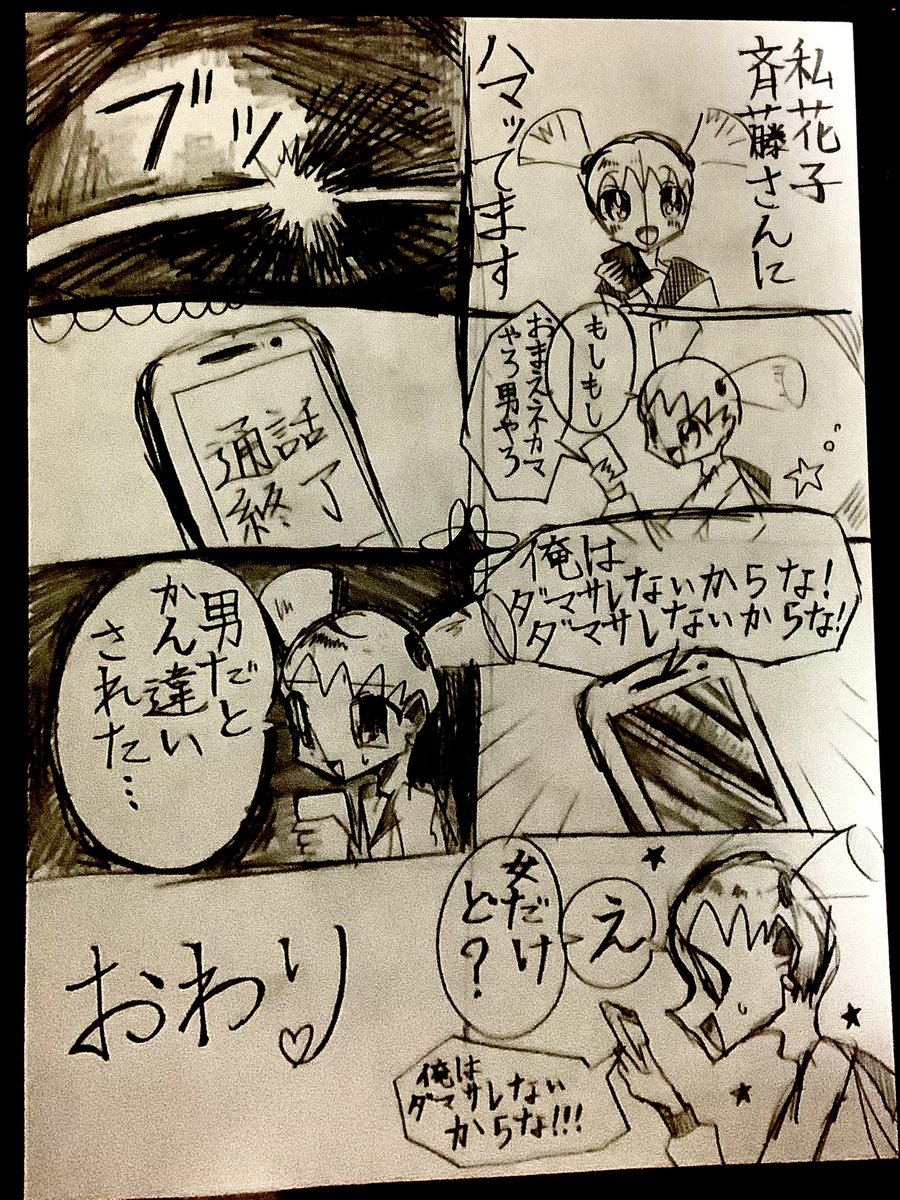 私花子
斉藤さんに
ハマッてます
もしもし
おまえネカマ
やろ男やろ
俺は
ダマサレないからな!
ダマサレないからな!
え
女だけ
ど?
俺は
ダマサレない
からな!!!
ブツッ
通話
終了
男だと
かん違い
された…
おわり♡